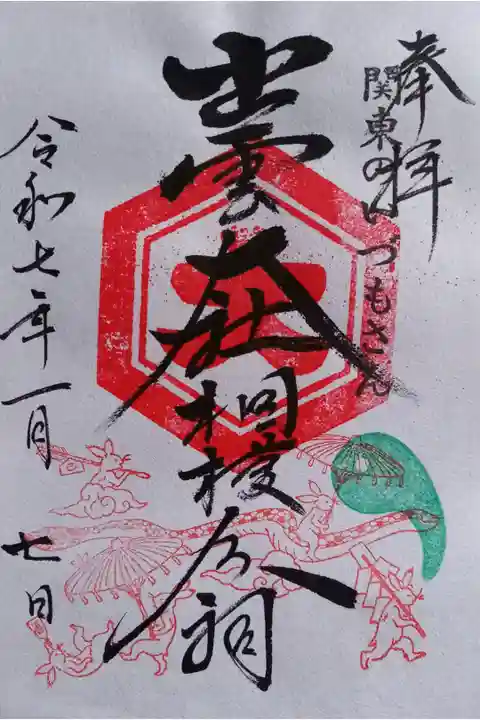 奉拝
関東のいづもさん
出雲大社相模分祠
大
令和七年一月七日